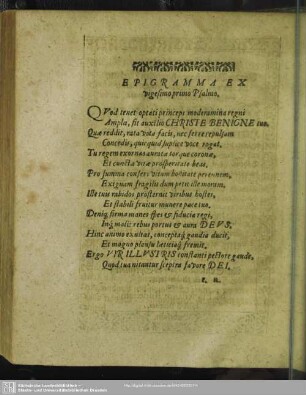 EPIGRAMMA EX
vigesimo primo Psalmo.
QVod tenet optati princeps moderamina regni
Ampla, sit auxilio CHRISTE BENIGNE tuo.
Quæ reddit, rata vota facis, nec ferre repulsam
Concedis, quicquid supplice voce rogat.
Tu regem exornas aurata torque coronæ,
Et cuncta vitæ prosperitate beas.
Pro summa confers vitam bonitate perennem,
Exiguam fragilis dum petit ille moram.
Ille tuis validos prosternit viribus hostes,
Et stabili fruitur munere pacis
Deniq; firma manet spes & fiducia regi,
Inq; malis rebus portus & aura DEUS.
Hinc animo exultat, conceptaq; gaudia ducit,
Et magno plausu lætitiaq; fremit.
Ergo VIR ILLUSTRIS constanti pectore gaude,
Quod tua nituntur sceptra favore DEI.